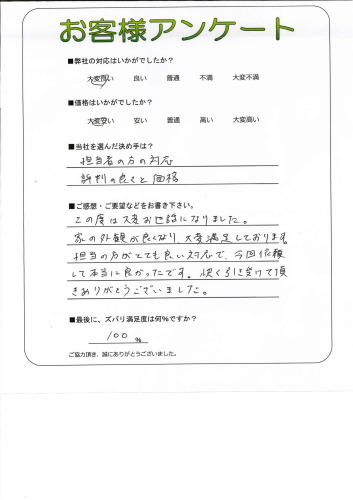 お客様アンケート
■弊社の対応はいかがでしたか？
大変良い 良い 普通 不満 大変不満
■価格はいかがでしたか？
大変安い 安い 普通 高い 大変高い
■当社を選んだ決め手は？
担当者の方の対応
評判の良さと価格
■ご感想・ご要望などをお書き下さい。
この度は大変お世話になりました。
家の外観が良くなり、大変満足しております。
担当の方がとても良い対応で、今回依頼
して本当に良かったです。快く引き受けて頂
きありがとうございました。
■最後に、ズバリ満足度は何%ですか？
100 %
ご協力頂き、誠にありがとうございました。